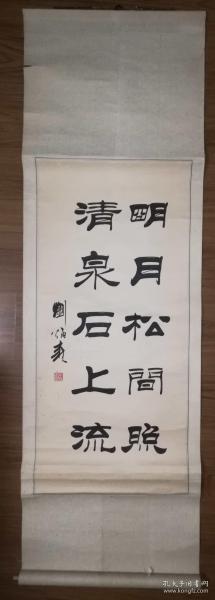 明月松間照
清泉石上流
劉炳森
孔夫子旧书网
kongfz.com